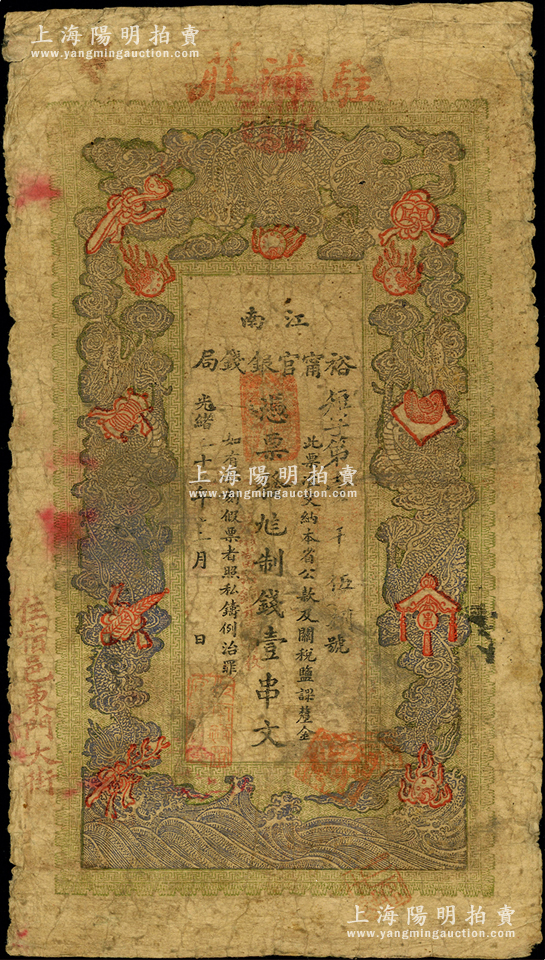 上海陽明拍賣
www.yangmingauction.com
江南
裕甯官銀錢局
字第 千伍 號
此票 完納本省公款及關稅鹽課釐金
憑票 足制錢壹串文
如有 假票者照私鑄例治罪
光緒 十 年 月 日
住宿邑東門大街
上海陽明拍賣
www.yangmingauction.com
上海陽明拍賣
www.yangmingauction.com